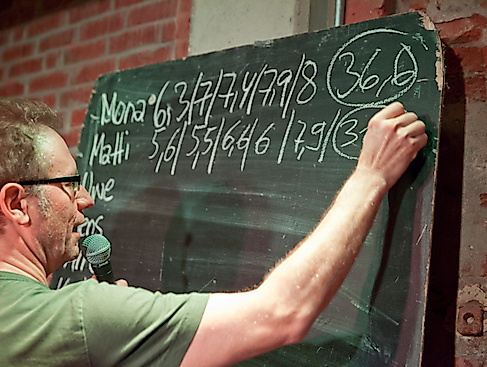 - Mona 6,3/7/7,4/7,9/8 36,6
- Matti 5,6/5,5/6,4/6/7,9/ 3
Uwe